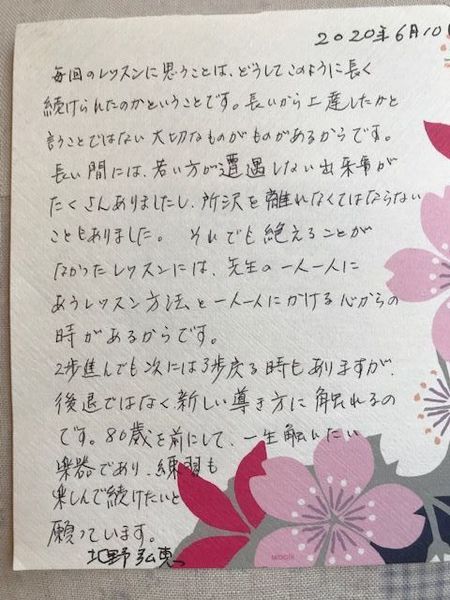 2020年6月10
毎回のレッスンに思うことは、どうしてこのように長く
続けられたのかということです。長いから上達したかと
言うことではない大切なものがものがあるからです。
長い間には、若い方が遭遇しない出来事が
たくさんありましたし、所沢を離れなくてはならない
こともありました。それでも絶えることが
なかったレッスンには、先生の一人一人に
あうレッスン方法と一人一人にかける心からの
時があるからです。
2歩進んでも次には3歩戻る時もありますが、
後退ではなく新しい導き方に触れるの
です。80歳を前にして、一生触れたい
楽器であり、練習も
楽しんで続けたいと
願っています。
北野弘恵